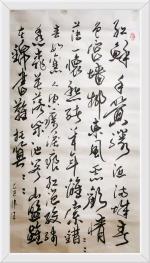 红酥手黄縢酒满城春
色宫墙柳东风恶欢情
薄一怀愁绪几年离索错错
错春如旧人空瘦泪痕红浥鲛绡
透桃花落闲池阁山盟虽
在锦书难托莫莫莫